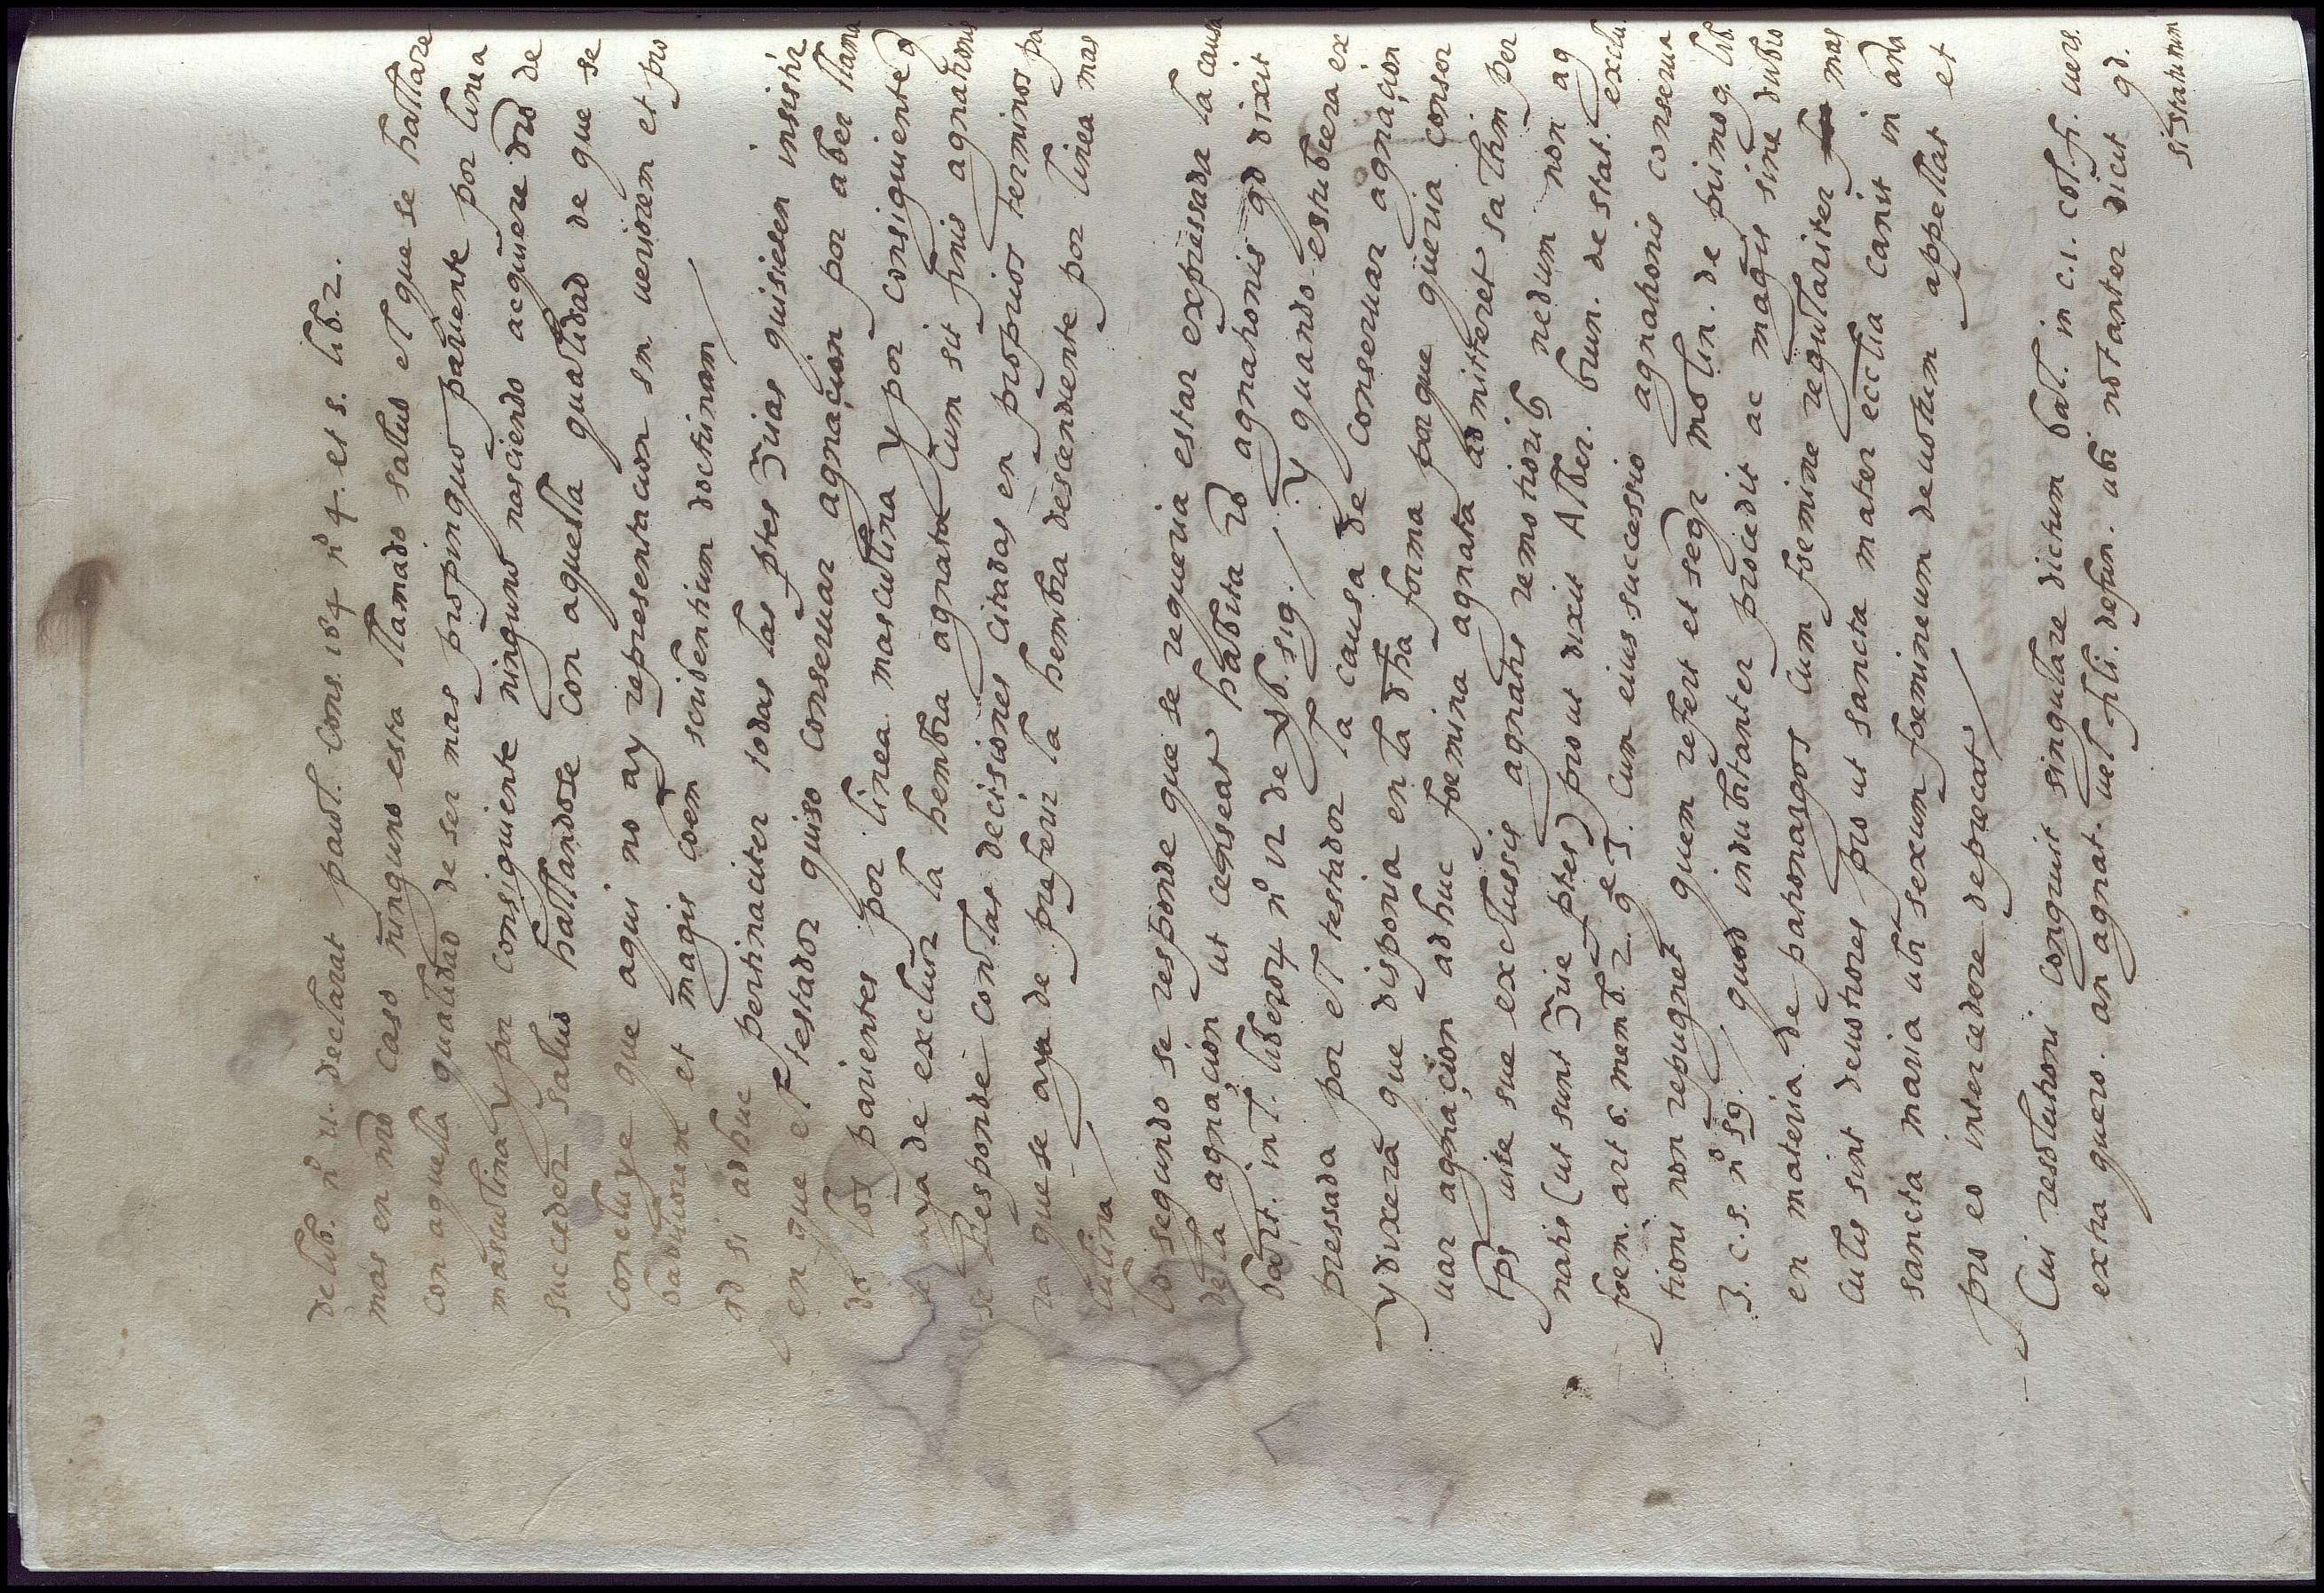 de lib. nº 11. declarat paul. cons. 184 nº 4. et s. lib. 2.
mas en nrõ caso ninguno esta llamado saluo el que se hallare
con aquella qualidad de ser mas propinquo pariente por linea
masculina y por consiguiente ninguno nasciendo acquiere drõ de
succeder saluo hallandose con aquella qualidad de que se
concluye que aqui no ay representacion sm ueriorem et pro
babiliorem et magis coem scribentium doctrinam
qd si adhuc pertinaciter todas las ptes quisiesen insistir
en que el testador quiso conseruar agnaçion por aber llama
do los parientes por linea masculina y por consiguiente q
se aya de excluir la hembra agnata cum sit finis agnationis
se Responde con las decisiones citadas en proprios terminos pa
ra que se aya de preferir la hembra descendiente por linea mas
culina
lo segundo se responde que se requeria estar expressada la causa
de la agnaçion ut censeat habita rõ agnationis qd dixit
bart. in l. liberor nº 12 de vb. sig. y quando estubiera ex
pressada por el testador la causa de conseruar agnaçion
y dixera que disponia en la dha forma porque queria conser
uar agnaçion adhuc foemina agnata admitteret saltim per
tps uite sue exclussis agnatis remotiorib nedum non ag
natis (ut sunt ptes) prout dixit Alber. brun. de stat. exclu.
foem. art 6. memb. 2. q 3. cum eius successio agnationis conserua
tioni non repugnet quem refert et seqr molin. de primog. lib.
3. c. 5. nº 59. quod indubitanter procedit ac magis sine dubio
en materia de patronazgos cum foemine regulariter mas
culis sint deuotiores prout sancta mater ecclia canit in anã
sancta maria ubi sexum foemineum deuotum appellat et
pro eo intercedere deprecat
Cui resolutioni congruit singulare dictum bal. in c. 1. col. fi. uers.
extra quero. an agnat. uel fili. defun. ubi notanter dicit qd.
si statutum